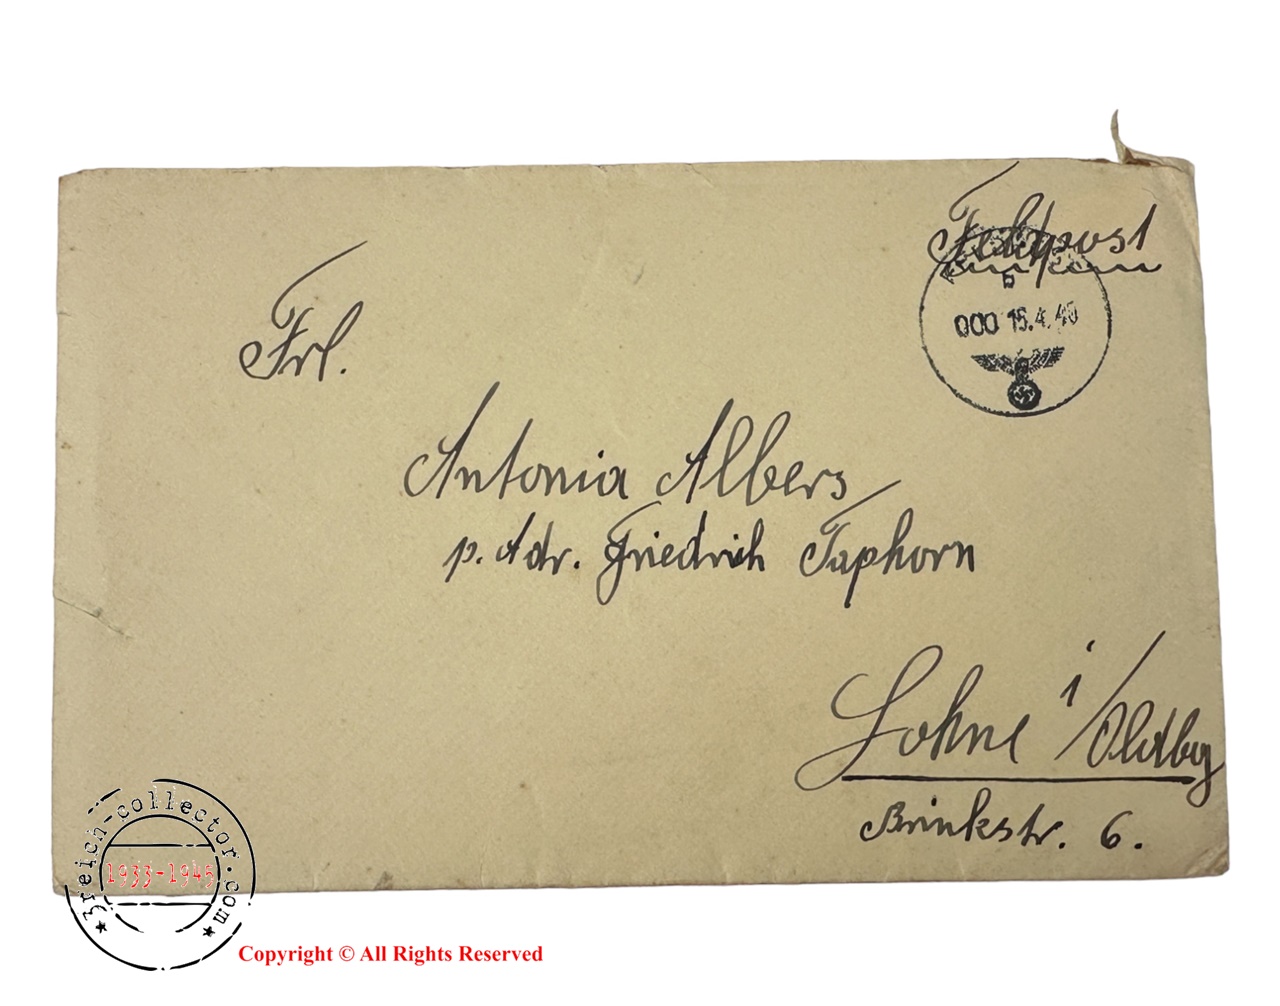 Feldpost
000 15.4.40
Frl.
Antonia Albers
p. Adr. Friedrich Taphorn
Lohne i/Oldbg
Brinkstr. 6.
3reich-collector.com
1933-1945
Copyright © All Rights Reserved